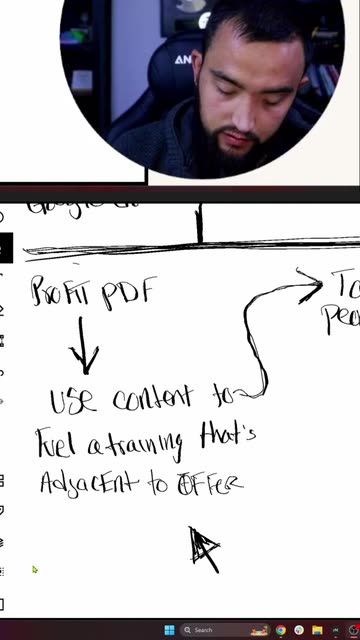 AN
Profit PDF
To
Use content to
Fuel a training that's
Adjacent to OFFer
Search